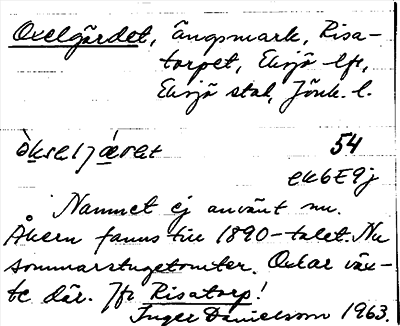 Oxelgärdet, ängsmark, Risa-
torpet, Eksjö lfs,
Eksjö stad, Jönk. l.
54
ek6E9j
Namnet ej använt nu.
Åkern fanns till 1890-talet. Nu
sommarstugetomter. Oxlar väx-
te där. Jfr Risatorp!
Inger Danielsson 1963.